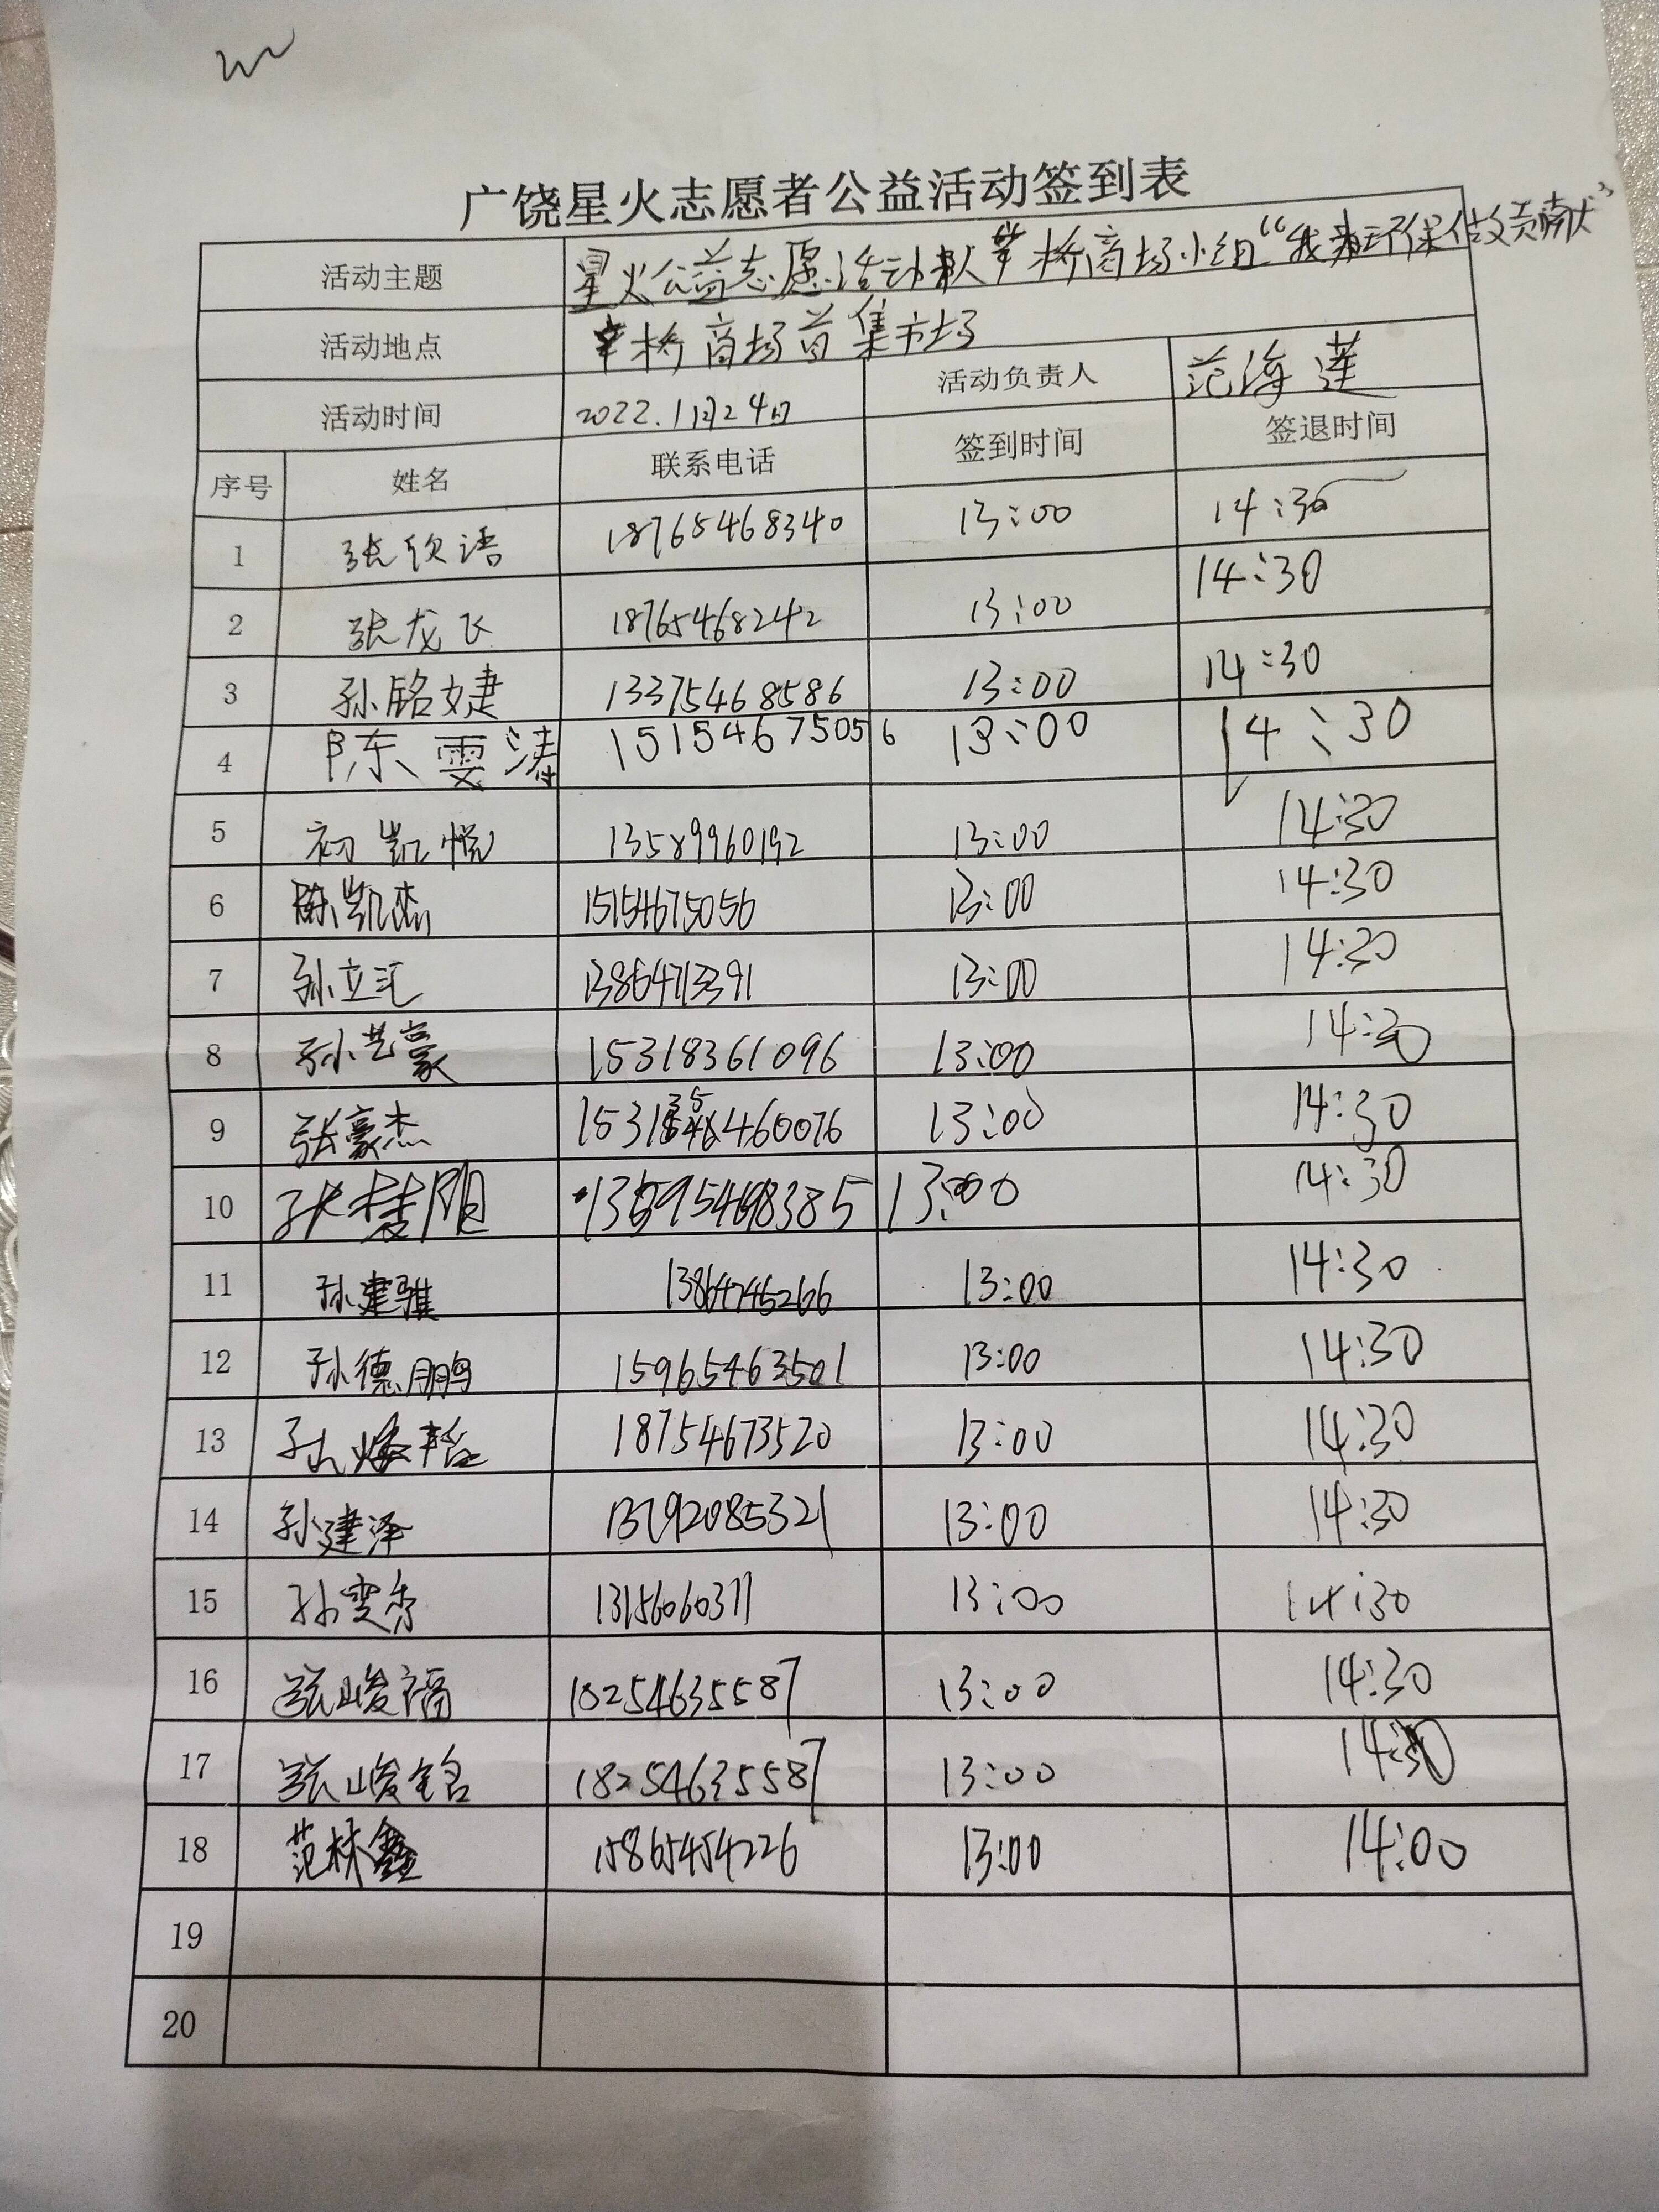 广饶星火志愿者公益活动签到表
活动主题 星火公益志愿活动队草桥商场小组“我为环保做贡献”
活动地点 草桥商场首集市场
活动时间 2022.11月24日 活动负责人 范海莲
序号 姓名 联系电话 签到时间 签退时间
1 张欣语 18765468340 13:00 14:30
2 张龙飞 18765468242 13:00 14:30
3 孙铭婕 13375468586 13:00 14:30
4 陈雯涛 15154675056 13:00 14:30
5 初凯悦 13589960192 13:00 14:30
6 陈凯杰 15154675056 13:00 14:30
7 孙立汇 13:00 14:30
8 孙艺豪 15318361096 13:00 14:30
9 张豪杰 13:00 14:30
10 13:00 14:30
11 孙建雅 13864745266 13:00 14:30
12 孙德鹏 15965463501 13:00 14:30
13 18754673520 13:00 14:30
14 孙建泽 13792085321 13:00 14:30
15 孙雯秀 13:00 14:30
16 张峻福 18254635587 13:00 14:30
17 张峻铭 18254635587 13:00 14:30
18 范林鑫 15865454226 13:00 14:00
19
20